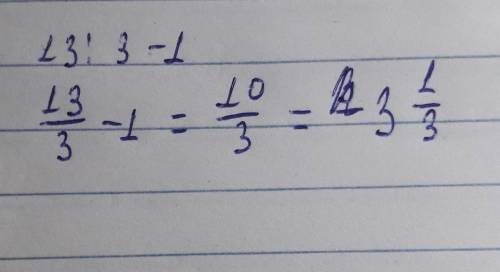 13 : 3 - 1
13/3 - 1 = 10/3 = 3 1/3